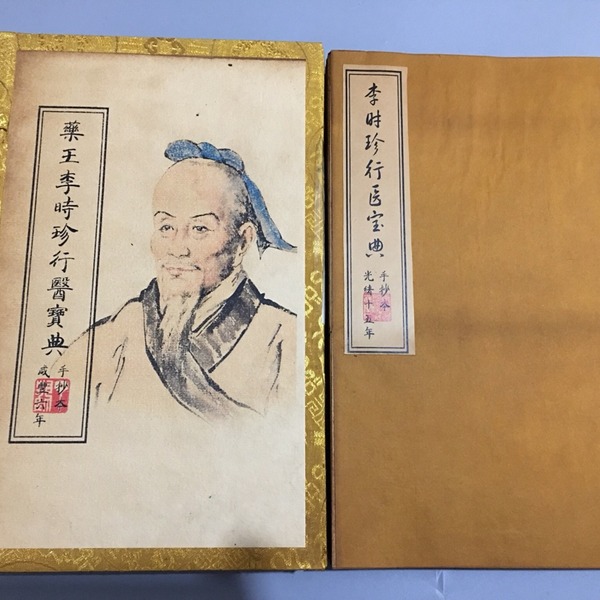 藥王李時珍行醫寶典
手抄本
咸豐六年
李时珍行医宝典
手抄本
光緒十五年